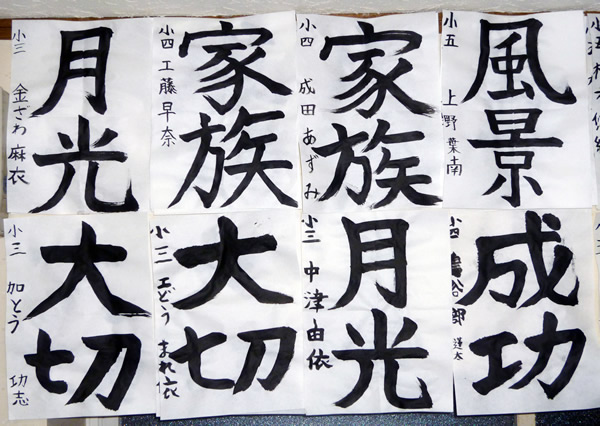 月光
小三 金ざわ麻衣
家族
小四 工藤早奈
家族
小四 成田あずみ
風景
小五 上野葉南
大切
小三 加とう功志
大切
小三 エどうまれ衣
月光
小三 中津由依
成功
小四